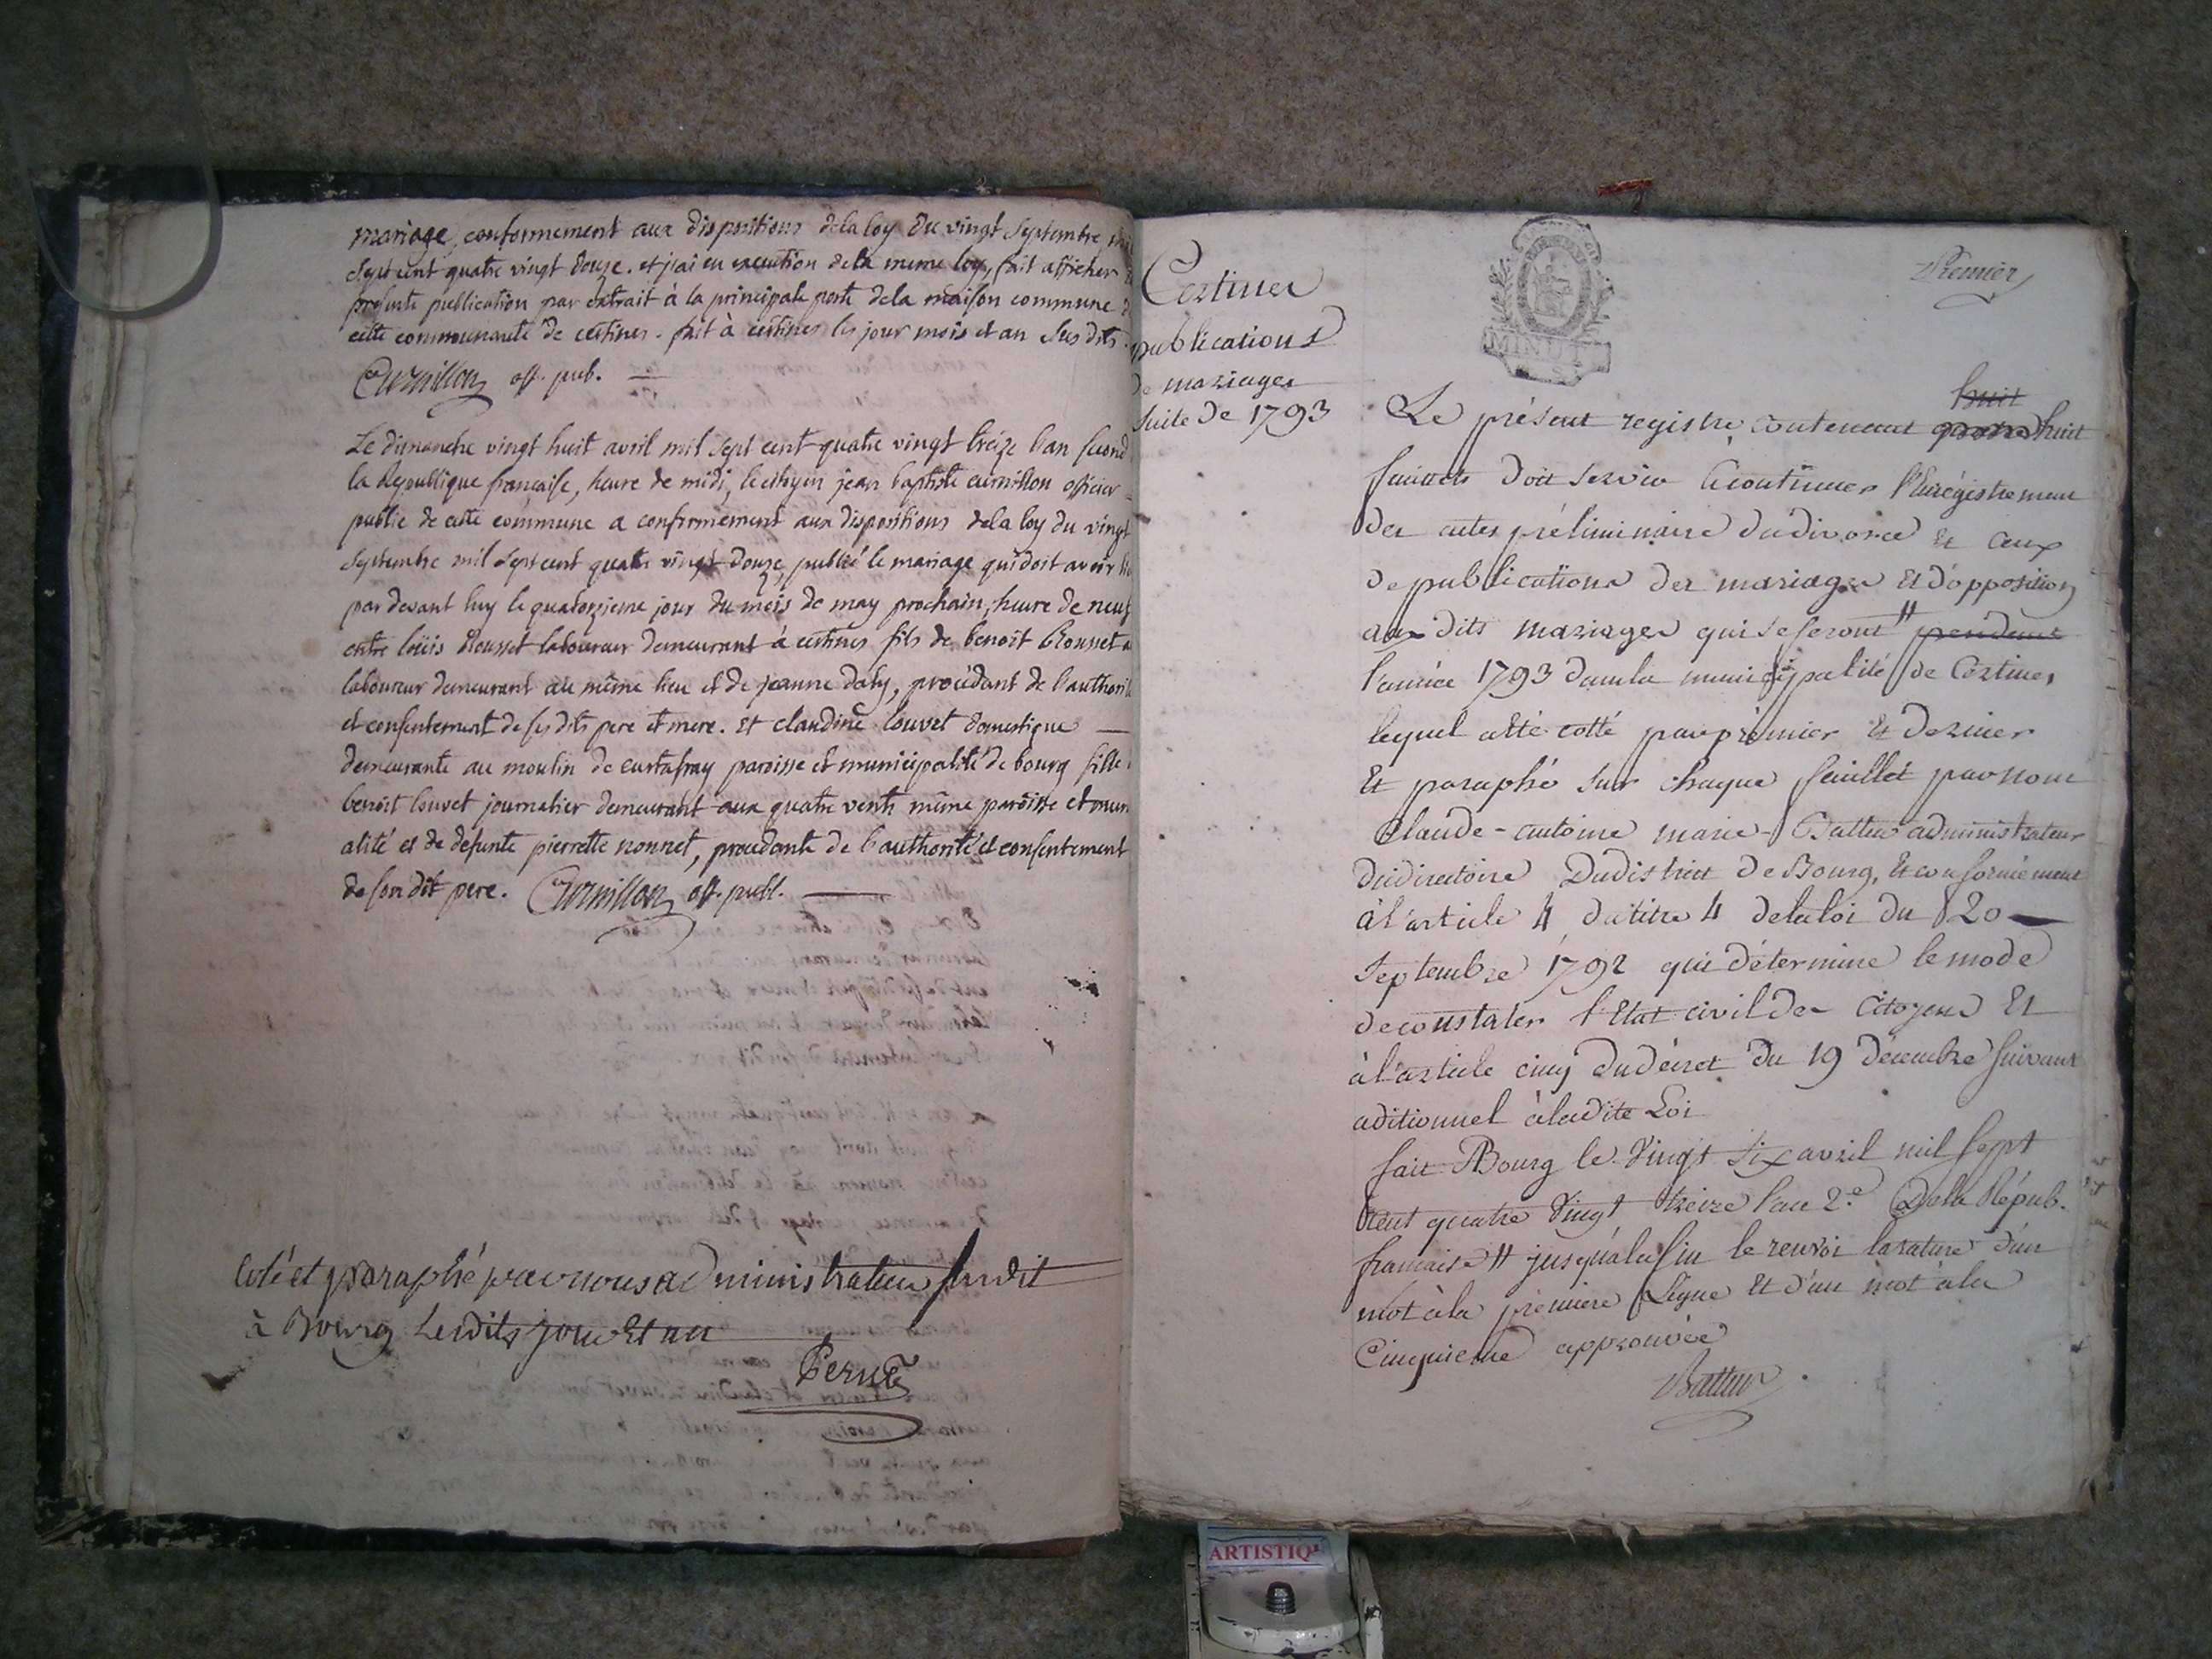 mariage, conformement aux dispositions de la loy du vingt septembre
sept cent quatre vingt douze. et j'ai en execution de la meme loy, fait afficher
presente publication par extrait à la principale porte de la maison commune
cette communauté de certines. fait à certines les jour mois et an susdits.
Curnillon off. pub.
Le dimanche vingt huit avril mil sept cent quatre vingt treize l'an second
la République française, heure de midi, le citoyen jean baptiste curnillon officier
public de cette commune a conformement aux dispositions de la loy du vingt
septembre mil sept cent quatre vingt douze, publié le mariage qui doit avoir
par devant luy le quatorzieme jour du mois de may prochain, heure de neuf
entre loüis Rousset laboureur demeurant à certines fils de benoit Rousset
laboureur demeurant au même lieu et de jeanne daty, procédant de l'authorité
et consentement de ses dits pere et mere. Et claudine louvet domestique
demeurante au moulin de curtafray paroisse et municipalité de bourg fille
benoit louvet journalier demeurant aux quatre vents même paroisse et
alité et de defunte pierrette nonnet, procedante de l'authorité et consentement
de son dit pere. Curnillon off. publ.
Coté et paraphé par nous administrateur susdit
à Bourg Lesdits jour Et an
Perret
Certines
publications
de mariages
suite de 1793
MINUT
Premier
huit
Le présent registre contenant quatre huit
feuillets doit servir à continuer l'Enrégistrement
des actes préliminaire du divorce et ceux
de publications des mariages Et d'opposition
aux dits mariages qui se feront " pendant
l'année 1793 dans la municipalité de Certines
lequel a été cotté par prémier Et dernier
Et paraphé sur chaque feuillet par nous
Claude-antoine marie- Battur administrateur
du directoire Du district De Bourg, Et conformément
à l'article 4 du titre 4 de la loi du 20
Septembre 1792 qui détermine le mode
de constater l'Etat civil des Citoyens Et
à l'article cinq du décret du 19 décembre suivant
aditionnel à la dite Loi
fait à Bourg le Vingt Six avril mil sept
Cent quatre Vingt treize l'an 2e. De la Répub.
francaise " jusqu'à la fin le renvoi la rature d'un
mot à la premiere Ligne Et d'un mot à la
Cinquieme approuvée
Battur
ARTISTIQ